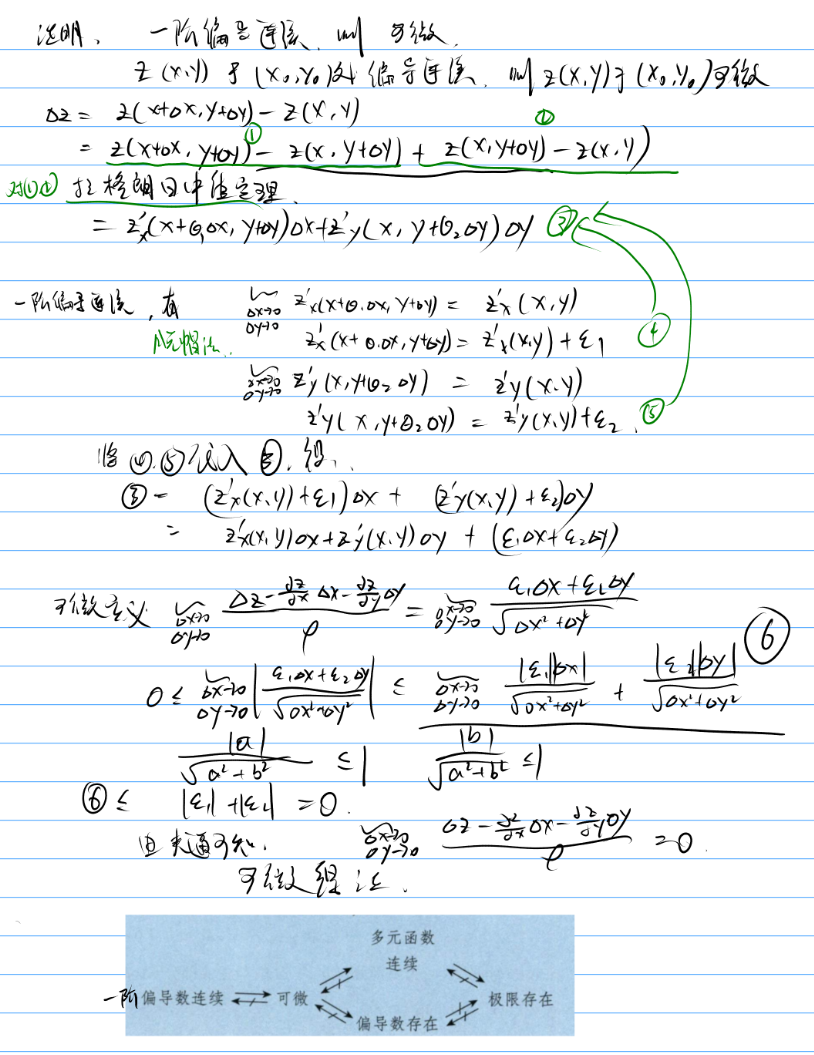 说明、 一阶偏导连续,则可微.
z(x,y)于(x₀,y₀)处偏导连续,则z(x,y)于(x₀,y₀)可微
Δz = z(x+Δx, y+Δy) - z(x,y)
= z(x+Δx, y+Δy) ① - z(x, y+Δy) + z(x, y+Δy) - z(x,y) ②
对①② 拉格朗日中值定理
= z'x(x+θ₁Δx, y+Δy)Δx + z'y(x, y+θ₂Δy)Δy ③
一阶偏导连续,有 lim Δx→0 Δy→0 z'x(x+θ₁Δx, y+Δy) = z'x(x,y)
z'x(x+θ₁Δx, y+Δy) = z'x(x,y)+ε₁ ④
lim Δx→0 Δy→0 z'y(x, y+θ₂Δy) = z'y(x,y)
z'y(x, y+θ₂Δy) = z'y(x,y)+ε₂. ⑤
将④.⑤代入③.得、
③ = (z'x(x,y)+ε₁)Δx + (z'y(x,y)+ε₂)Δy
= z'x(x,y)Δx+z'y(x,y)Δy + (ε₁Δx+ε₂Δy)
可微定义 lim Δx→0 Δy→0 (Δz - ∂z/∂x Δx - ∂z/∂y Δy)/ρ = lim Δx→0 Δy→0 (ε₁Δx+ε₂Δy)/√(Δx²+Δy²)
0 ≤ lim Δx→0 Δy→0 |(ε₁Δx+ε₂Δy)/√(Δx²+Δy²)| ≤ lim Δx→0 Δy→0 |ε₁||Δx|/√(Δx²+Δy²) + |ε₂||Δy|/√(Δx²+Δy²) ⑥
|a|/√(a²+b²) ≤ 1 |b|/√(a²+b²) ≤ 1
⑥ ≤ |ε₁|+|ε₂| = 0.
由夹逼可知. lim Δx→0 Δy→0 (Δz - ∂z/∂x Δx - ∂z/∂y Δy)/ρ = 0.
可微得证.
多元函数
连续
一阶偏导数连续 可微 极限存在
偏导数存在